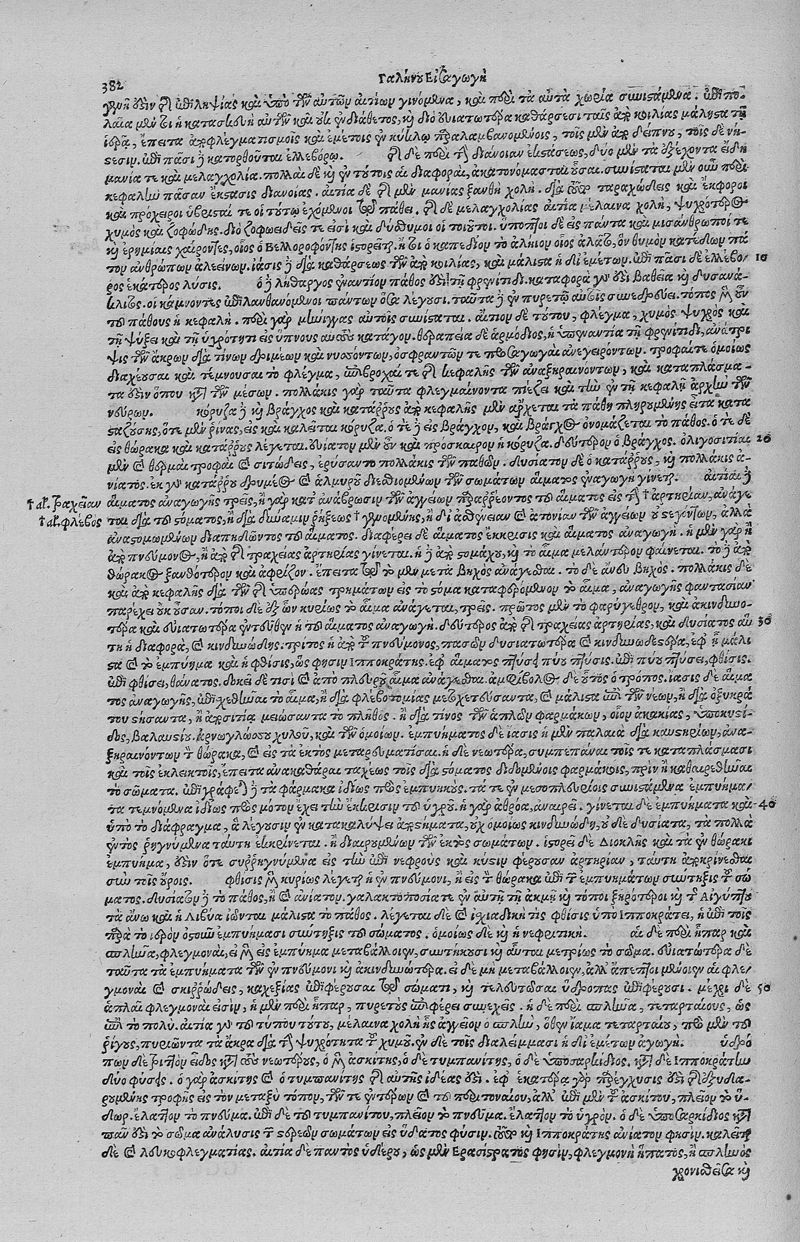 382 Γαλήνου Εἰσαγωγὴ
γωγὴ οὖσιν τῆς ἐπιληψίας καὶ ὑπὸ τῶν αὐτῶν αἰτίων γινόμεναι, καὶ περὶ τὰ αὐτὰ χωρία συνιστάμεναι. ἐπιπο-
λαία μὲν ἔτι ἡ κατασκευὴ αὐτῶν καὶ οὐκ ἐνδιάθετος, καὶ διὸ εὐιατότερα καθάρσεσι ταῖς ἀπὸ κοιλίας μάλιστα τῇ
ἱερᾷ, ἔπειτα ἀποφλεγματισμοῖς καὶ ἐμέτοις ἐν κύκλῳ παραλαμβανομένοις, τοῖς μὲν ἀπὸ δείπνου, τοῖς δὲ νή-
στεσιν. ἐπὶ πᾶσι δὲ κατορθοῦται ἐλλεβόρῳ. τῆς δὲ περὶ τὴν διάνοιαν ἐκστάσεως, δύο μὲν τὰ ἐξέχοντα εἴδη
μανία τε καὶ μελαγχολία. πολλαὶ δὲ καὶ ἐν τύποις αἱ διαφοραὶ, ἀκατονόμαστοι οὖσαι. συνίσταται μὲν οὖν περὶ
κεφαλὴν πᾶσαν ἔκστασις διανοίας. αἰτία δὲ τῆς μὲν μανίας ξανθὴ χολή. διὰ τοῦτο ταραχώδεις καὶ ἔκφοροι
καὶ πρόχειροι ὑβρισταί τε οἱ τούτῳ ἐχόμενοι τῷ πάθει. τῆς δὲ μελαγχολίας αἰτία μέλαινα χολὴ, ψυχρότερος
χυμὸς καὶ ζοφώδης. διὸ ζοφωειδεῖς τε εἰσὶ καὶ δύσθυμοι οἱ τοιοῦτοι. ὕποπτοι δὲ εἰς πάντα καὶ μισάνθρωποί τε
καὶ ἐρημίαις χαίροντες, οἷος ὁ Βελλοροφόντης ἱστορεῖται. ἤ τοι ὁ καπεδίον τὸ ἀλήιον οἷος ἀλᾶτο, ὃν θυμὸν κατέδων πά
τον ἀνθρώπων ἀλεείνων. ἴασις δὲ διὰ καθάρσεως τῶν ἀπὸ κοιλίας, καὶ μάλιστα ἡ δι' ἐμέτων. ἐπὶ πᾶσι δὲ ἐλλέβο- 10
ρος ἑκατέροις λύσις. ὁ δὲ λήθαργος ἐναντίον πάθος ἐστὶ τῇ φρενίτιδι. καταφορὰ γάρ ἐστι βαθεῖα καὶ δυσανά-
κλητος. οἱ κάμνοντες ἐπιλανθανόμενοι πάντων ὅσα λέγουσι. ταῦτα δὲ ἐν πυρετῷ αὐτοῖς συνεδρεύει. τόπος μὲν οὖν
τοῦ πάθους ἡ κεφαλή. περὶ γὰρ μήνιγγας αὐτοῖς συνίσταται. αἴτιον δὲ τούτου, φλέγμα, χυμὸς ψυχρὸς καὶ
τῇ ψύξει καὶ τῇ ὑγρότητι εἰς ὕπνους αὐτοὺς κατάγων. θεραπεία δὲ ἁρμόδιος, ἡ ὑπεναντία τῇ φρενίτιδι, ἀνάτρι
ψις τῶν ἄκρων διὰ τινῶν δριμέων καὶ νυσσόντων, ὀσφραντῶν τε προσαγωγαὶ ἀνεγειρόντων. τροφαί τε ὁμοίως
διαχέουσαι καὶ τέμνουσαι τὸ φλέγμα, ἐμβροχαί τε τῆς κεφαλῆς τῶν ἀναξηραινόντων, καὶ καταπλάσμα-
τα δ' ἔστιν ὅπου κατὰ τῶν μέσων. πολλάκις γὰρ ταῦτα φλεγμαίνοντα πιέζει καὶ τὴν ἐν τῇ κεφαλῇ ἀρχὴν τῶν
νεύρων. κόρυζα δὲ καὶ βράγχος καὶ κατάρρους ἀπὸ κεφαλῆς μὲν ἄρχεται τὰ πάθη πληρουμένης εἶτα κατα
σταζούσης, ὅτε μὲν ῥῖνας, εἰς καὶ καλεῖται κόρυζα. ὁ τε δὲ εἰς βράγχον, καὶ βράγχος ὀνομάζεται τὸ πάθος. ὁ τε δὲ
εἰς θώρακα καὶ κατάρρους λέγεται. εὐίατον μὲν οὖν καὶ πρόσκαιρον ἡ κόρυζα. δεύτερον ὁ βράγχος. ὀλιγοσιτίαι 20
μὲν καὶ θερμαὶ τροφαὶ καὶ σιτώδεις, ἐρύσαντο πολλάκις τῶν παθῶν. δυσίατον δὲ ὁ κατάρρους, καὶ πολλάκις ἀ-
νίατος. ἐκ γὰρ κατάρρου δριμέος καὶ ἁλμυροῦ διεσθιομένων τῶν σωμάτων αἵματος ἀναγωγὴ γίνεται. αἰτίαι δὲ
†αλ. τραχεῖαν αἵματος ἀναγωγῆς τρεῖς, ἢ γὰρ κατ' ἀνάβρωσιν τῶν ἀγγείων παραρρέοντος τοῦ αἵματος εἰς τὴν †ἀρτηρίαν, ἀνάγε
†αλ. φλεβὸς ται διὰ τοῦ στόματος, ἢ διὰ δύναμιν ῥήξεως †γενομένης, ἢ δι' ἀσθένειαν καὶ ἀτονίαν τῶν ἀγγείων οὐ στεγόντων, ἀλλὰ
ἀναστομωμένων διαπηδῶντος τοῦ αἵματος. διαφέρει δὲ αἵματος ἔκκρισις καὶ αἵματος ἀναγωγή. ἡ μὲν γὰρ ἢ
ἀπὸ πνεύμονος, ἢ ἀπὸ τῆς τραχείας ἀρτηρίας γίνεται. ἡ δὲ ἀπὸ στομάχου, καὶ τὸ αἷμα μελάντερον φαίνεται. τὸ δὲ ἀπὸ
θώρακος ξανθότερον καὶ ἀφρίζον. ἔπειτα τοῦτο μὲν μετὰ βηχὸς ἀνάγεται. τὸ δὲ ἄνευ βηχός. πολλάκις δὲ
καὶ ἀπὸ κεφαλῆς διὰ τῶν ὑπερῴας τρημάτων εἰς τὸ στόμα καταφερόμενον τὸ αἷμα, ἀναγωγῆς φαντασίαν
παρέχει οὐκ οὖσαν. τόποι δὲ ἐξ ὧν κυρίως τὸ αἷμα ἀνάγεται, τρεῖς. πρῶτος μὲν τὸ φαρύγεθρον, καὶ ἀκινδυνο-
τέρα καὶ εὐιατωτέρα ἐντεῦθεν ἡ τοῦ αἵματος ἀναγωγή. δεύτερος ἀπὸ τῆς τραχείας ἀρτηρίας, καὶ δυσίατος αὐ 30
τη ἡ διαφορὰ, καὶ κινδυνώδης. τρίτος ἡ ἀπὸ τοῦ πνεύμονος, πασῶν δυσιατωτέρα καὶ κινδυνωδεστέρα, ἐφ' ᾗ μάλι
στα καὶ τὸ ἐμπύημα καὶ ἡ φθίσις, ὥς φησιν Ιπποκράτης. ἐφ' αἵματος πτύσει πύου πτύσις. ἐπὶ πύου πτύσει, φθίσις.
ἐπὶ φθίσει, θάνατος. δοκεῖ δέ τισι καὶ ἀπὸ πλευροῦ αἷμα ἀνάγεσθαι. ἀμφίβολος δὲ οὗτος ὁ τρόπος. ἴασις δὲ αἵμα
τος ἀναγωγῆς, ἐπισχεθῆναι τὸ αἷμα, ἢ διὰ φλεβοτομίας μετοχετεύσαντα, καὶ μάλιστα ἐπὶ τῶν νέων, ἢ διὰ ὀξυκρά
του στήσαντα, ἢ ἀσιτία μειώσαντα τὸ πλῆθος. ἢ διὰ τινος τῶν ἁπλῶν φαρμάκων, οἷον ἀκακίας, ὑποκυστί-
δος, βαλαυστίου. ἀρνογλώσσου χυλοῦ, καὶ τῶν ὁμοίων. ἐμπυήματος δὲ ἴασις ἡ μὲν παλαιὰ διὰ καυστηρίων, ἀνα-
ξηραινόντων τὸν θώρακα, καὶ εἰς τὰ ἐκτὸς μεταρευματίσαι. ἡ δὲ νεωτέρα, συμπεπᾶναι τοῖς τε καταπλάσμασι
καὶ τοῖς ἐκλεικτοῖς, ἔπειτα ἀνακαθᾶραι ταχέως τοῖς διὰ στόματος διδομένοις φαρμάκοις, πρὶν ἢ καθαιρεθῆναι
τὸ σῶμα. ἐπιγράφεται δὲ τὰ φάρμακα ἰδίως πρὸς ἐμπυηκούς. τὰ τε ἐν μεσοπλευρίοις συνιστάμενα ἐμπυήμα-
τα τεμνόμενα ἰδίως πρὸς μοτὸν ἔχει τὴν ἔκκρισιν τοῦ ὑγροῦ. ἡ γὰρ ἀθρόα, ἀναιρεῖ. γίνεται δὲ ἐμπυήματα καὶ 40
ὑπὸ τὸ διάφραγμα, ἃ λέγουσιν ἐν κατακαλύψει ἀποστήματα, οὐχ ὁμοίως κινδυνώδη, οὐ δὲ δυσίατα, τὰ πολλὰ
ἐντὸς ῥηγνύμενα ταύτῃ ἐκκρίνεται. ἢ διαιρουμένων τῶν ἐκτὸς σωμάτων. ἱστορεῖ δὲ Διοκλῆς καὶ τὰ ἐν θώρακι
ἐμπύημα, ἔστιν ὅτε συρρηγνύμενα εἰς τὴν ἐπὶ νεφροὺς καὶ κύστιν φέρουσαν ἀρτηρίαν, ταύτῃ ἀποκρίνεσθαι
σὺν τοῖς οὔροις. φθίσις μὲν κυρίως λέγεται ἡ ἐν πνεύμονι, ἢ εἰς τὸν θώρακα ἐπὶ τῶν ἐμπυημάτων σύντηξις τοῦ σώ
ματος. δυσίατον δὲ τὸ πάθος, ἢ καὶ ἀνίατον. γαλακτοποσία τε ἐν αὐτῇ τῇ ἀκμῇ καὶ τόποι ξηρότεροι καὶ τῆς Αἰγύπτου
τὰ ἄνω καὶ ἡ Λιβύα ἰῶνται μάλιστα τὸ πάθος. λέγεται δὲ καὶ ἰσχιαδική τις φθίσις ὑπὸ Ιπποκράτει, ἡ ἐπὶ τοῖς
παρὰ τὸ ἱερὸν ὀστοῦν ἐμπυήμασι σύντηξις τοῦ σώματος. ὁμοίως δὲ καὶ ἡ νεφριτική. αἱ δὲ περὶ ἧπαρ καὶ
σπλῆνα, φλεγμοναὶ, εἰ μὲν εἰς ἐμπύημα μεταβάλλοιεν, συντήκουσι καὶ αὗται μετρίως τὸ σῶμα. εὐιατώτερα δὲ
ταῦτα τὰ ἐμπυήματα τῶν ἐν πνεύμονι καὶ ἀκινδυνώτερα. εἰ δὲ μὴ μεταβάλλοιεν, ἀλλ' ἄπεπτοι μένοιεν αἱ φλε-
γμοναὶ καὶ σκιρρώδεις, καχεξίας ἐπιφέρουσαι τῷ σώματι, καὶ τελευτῶσαι ὕδρωπας ἐπιφέρουσι. μέχρι δὲ 50
ἁπλαῖ φλεγμοναί εἰσιν, ἡ μὲν περὶ ἧπαρ, πυρετοὺς ἐπιφέρει συνεχεῖς. ἡ δὲ περὶ σπλῆνα, τεταρταίους, ὡς
ἐπὶ τὸ πολύ. αἰτία γὰρ τοῦ τύπου τούτου, μέλαινα χολῆς ἀγγεῖον ὁ σπλὴν, ὅθεν ἴαμα τεταρταίου, πρὸ μὲν τοῦ
ῥίγους, πυριῶντα τὰ ἄκρα διὰ τὴν ψυχρότητα τοῦ χυμοῦ. ἐν δὲ τοῖς διαλείμμασι ἡ δι' ἐμέτων ἀγωγή. ὑδρώ
πων δὲ τριττὸν εἶδος κατὰ τοὺς νεωτέρους, ὁ μὲν ἀσκίτης, ὁ δὲ τυμπανίτης, ὁ δὲ ὑποσαρκίδιος. κατὰ δὲ Ιπποκράτην
δύο φύσεις. ὁ γὰρ ἀσκίτης καὶ ὁ τυμπανίτης τῆς αὐτῆς ἰδέας ἐστί. ἐφ' ἑκατέρῳ γὰρ παρέγχυσις ἐστὶ τῆς ἐξυδα-
ρουμένης τροφῆς εἰς τὸν μεταξὺ τόπον, τῶν τε ἐντέρων καὶ τοῦ περιτοναίου, ἀλλ' ἐπὶ μὲν τοῦ ἀσκίτου, πλεῖον τὸ ὕ-
δωρ. ἔλαττον τὸ πνεῦμα. ἐπὶ δὲ τοῦ τυμπανίτου, πλεῖον τὸ πνεῦμα. ἔλαττον τὸ ὑγρόν. ὁ δὲ ὑποσαρκίδιος κατὰ
πᾶν ἐστὶ τὸ σῶμα ἀνάλυσις τῶν στερεῶν σωμάτων εἰς ὕδατος φύσιν. τοῦτο καὶ Ιπποκράτης ἀνίατον φησίν. καλεῖται
δὲ καὶ λευκοφλεγματίας. αἰτία δὲ παντὸς ὑδέρου, ὡς μὲν Ερασίστρατος φησὶν, φλεγμονὴ ἥπατος, ἢ σπληνὸς
χρονισθεῖσα καὶ